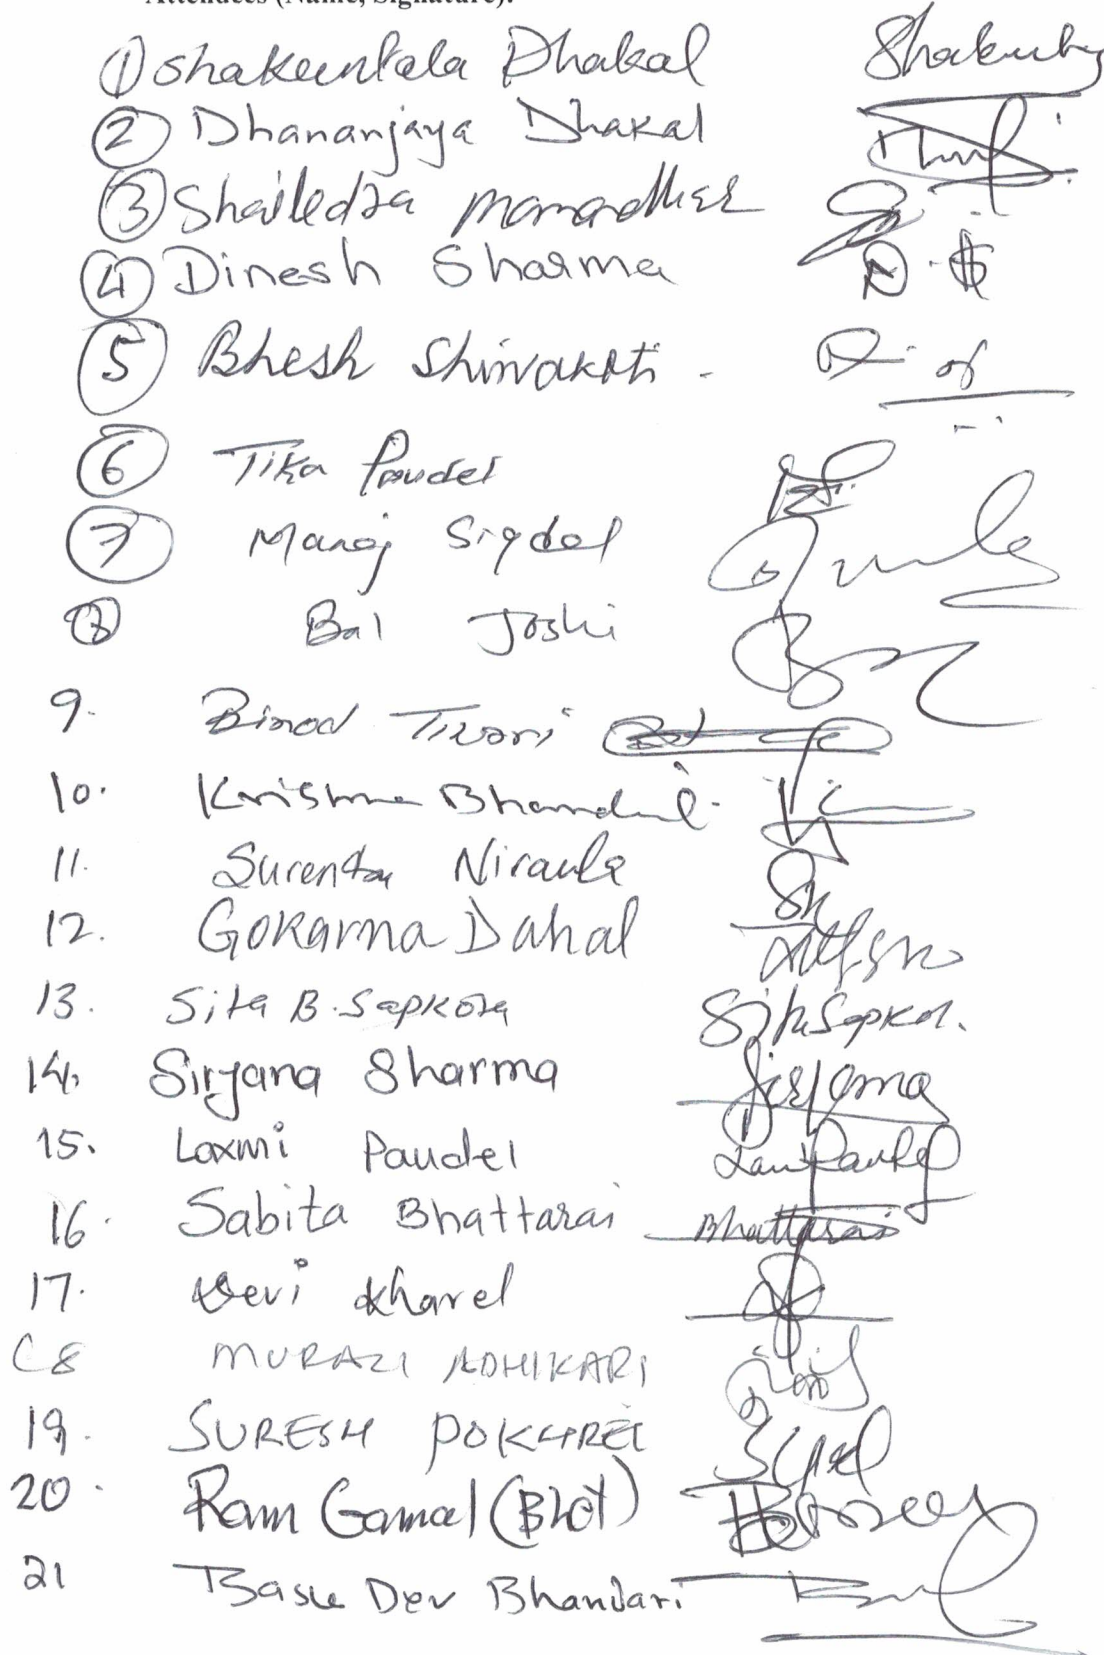 Attendees (Name, Signature):
1 Shakuntala Dhakal
2 Dhananjaya Dhakal
3 Shailedra manandhar
4 Dinesh Sharma D.S
5 Bhesh Shivakoti -
6 Tika Paudel
7 Manoj Sigdel
8 Bal Joshi
9. Binod Tiwari
10. Krishna Bhandari
11. Surendra Niraula
12. Gokarna Dahal
13. Sita B. Sapkota Sita Sapkota.
14. Sirjana Sharma Sirjana
15. Laxmi Paudel
16. Sabita Bhattarai Bhattarai
17. Devi Kharel
18 MURARI ADHIKARI
19. SURESH POKHREL
20. Ram Gamal (Bhot)
21 Basu Dev Bhandari